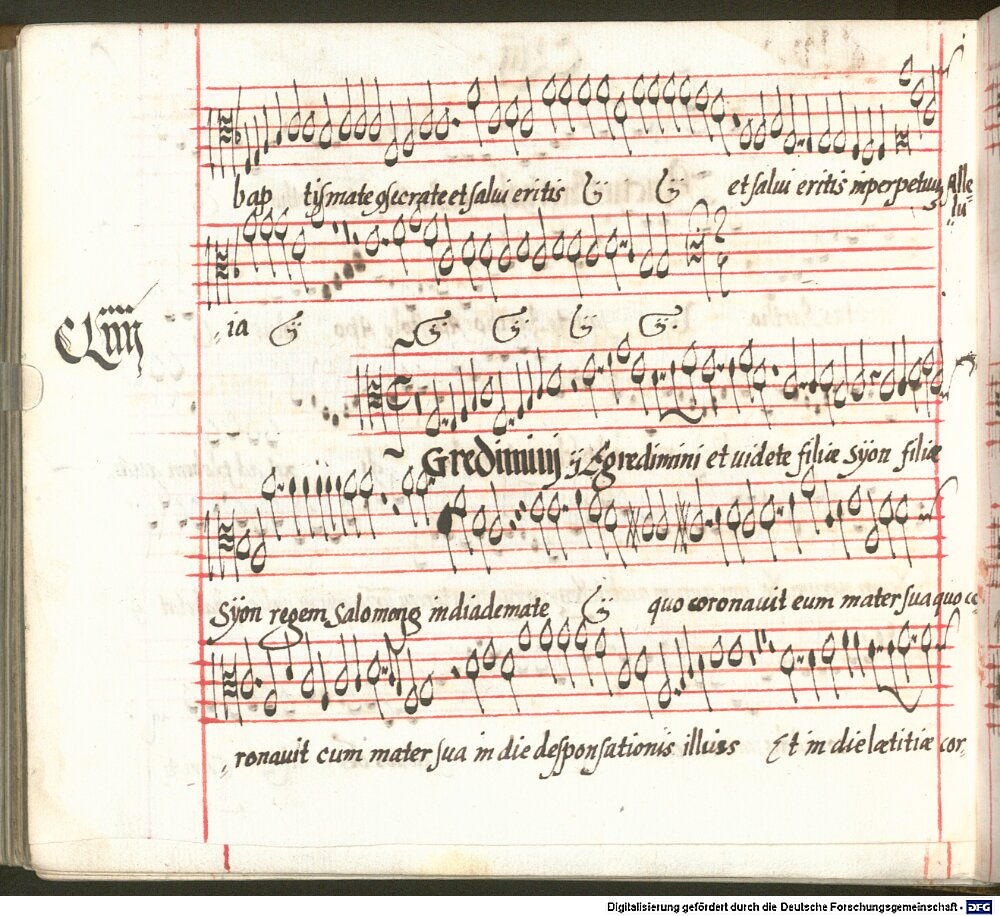 bap tismate gsecrate et salui eritis ij ij et salui eritis inperpetuuz Alle
lu
ia ij ij ij ij ij
CLiiii
EGredimini ij Egredimini et uidete filiæ Syon filiæ
Syon regem Salomong indiademate ij quo coronauit eum mater sua quo co
ronauit cum mater sua in die desponsationis illius Et in die lætitiæ cor-
Digitalisierung gefördert durch die Deutsche Forschungsgemeinschaft - DFG